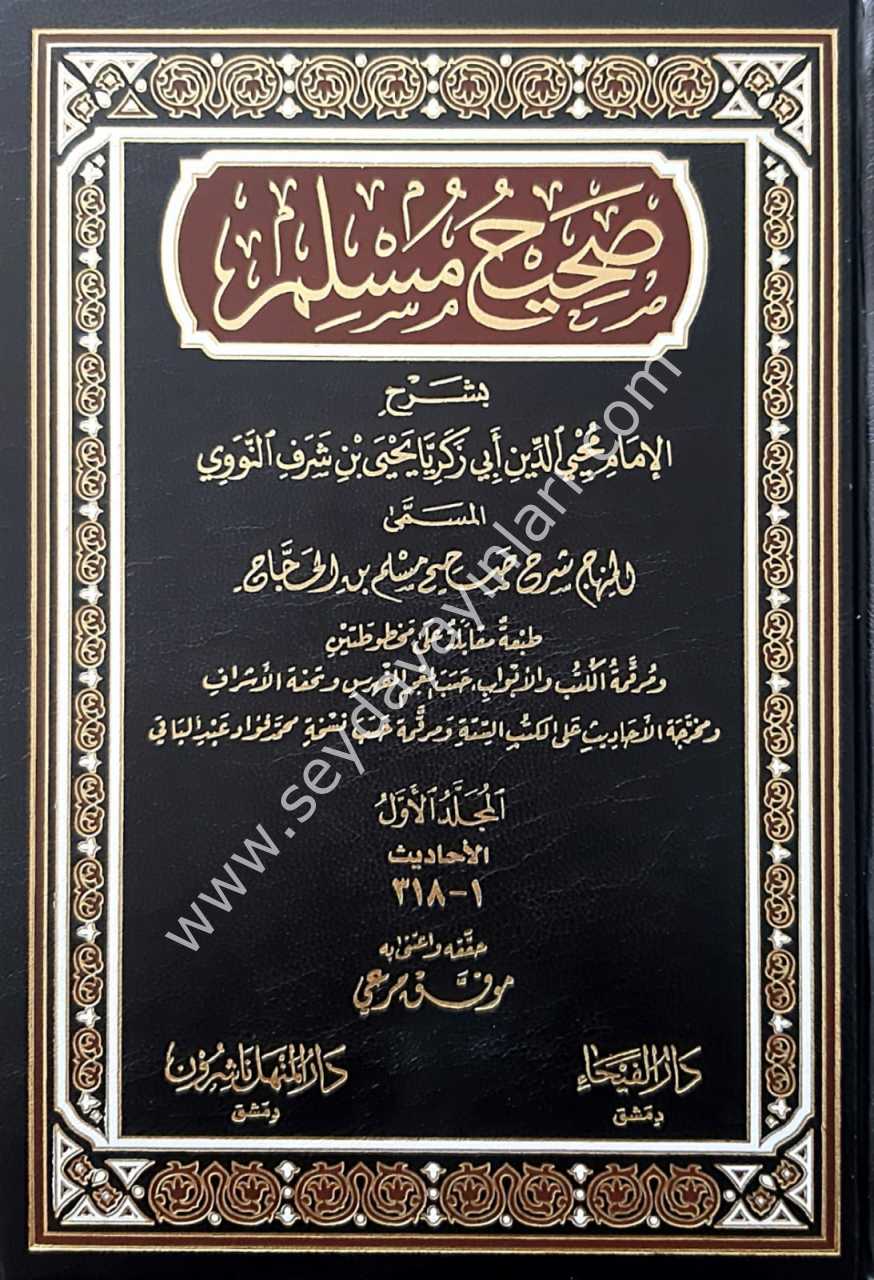 صَحِيحُ مُسْلِم
بشرح
الإمَامِ مُحْيِي الدِّينِ أَبِي زَكَرِيَّا يَحْيَى بْنِ شَرَفِ النَّوَوِي
المسمّى
المنهاج شرح صحيح مسلم بن الحجّاج
طبْعةٌ مقابَلةٌ على مخطوطتَين
ومُرقَّمةُ الكُتُبِ والأبْوابِ حسَبَ المعجم المفهرس وتحفة الأشراف
ومخرَّجة الأحَاديثِ على الكتبِ السِّتَّةِ ومرقَّمة حسَبَ نُسْخَةِ محمّد فؤاد عَبْد الباقي
المُجَلَّدُ الأوَّلُ
الأحاديث
١-٣١٨
حقّقه واعتنى به
موفّق مرعي
دَارُ الفَيْحَاء
دِمَشق
دَارُ المَنْهَل نَاشِرُون
دِمَشق
www.seydayayinlari.com